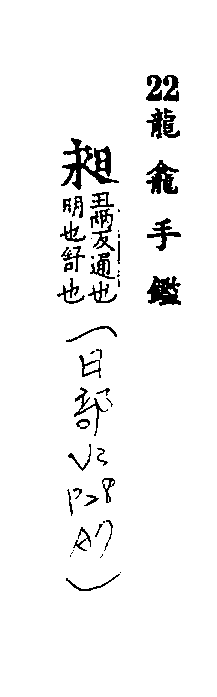 22龍龕手鑑
昶丑兩反通也
明也舒也
(日部V3P28A7)